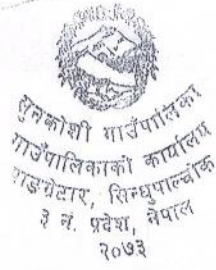 सुनकोशी गाउँपालिका
गाउँपालिकाको कार्यालय
सिन्धुपाल्चोक
३ नं. प्रदेश, नेपाल
२०७३